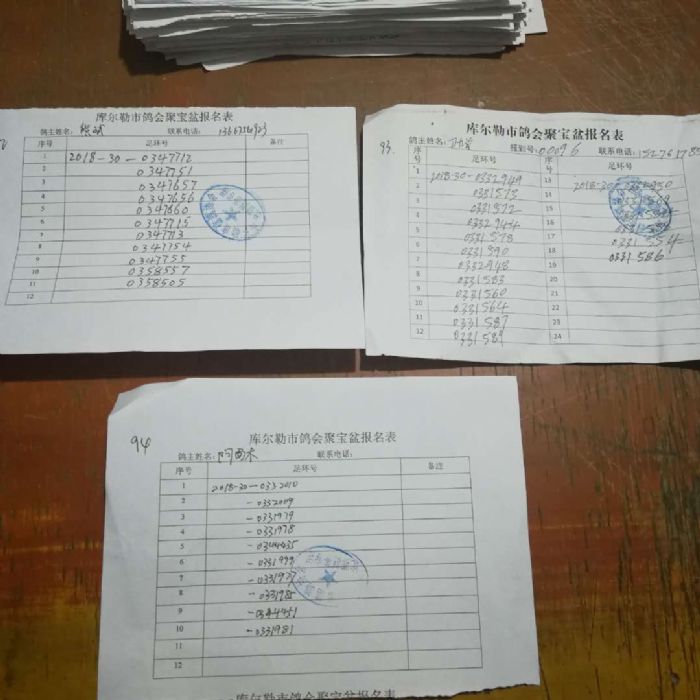 库尔勒市鸽会聚宝盆报名表
鸽主姓名: 联系电话:
序号 足环号 备注
1 2018-30-0347712
2 0347751
3 0347657
4 0347656
5 0347660
6 0347715
7 0347713
8 0347754
9 0347755
10 0358557
11 0358505
12
93.
库尔勒市鸽会聚宝盆报名表
鸽主姓名: 报到号:00096 联系电话:
序号 足环号 序号 足环号
1 2018-30-0332949 13
2 0331573 14
3 0331572 15
4 0332944 16
5 0331578 17 0331554
6 0331590 18 0331586
7 0332948 19
8 0331583 20
9 0331560 21
10 0331564 22
11 0331587 23
12 0331589 24
94
库尔勒市鸽会聚宝盆报名表
鸽主姓名:阿曲木 联系电话:
序号 足环号 备注
1 2018-30-0332010
2 -0332009
3 -0331979
4 -0331978
5 -0344435
6 -0331999
7 -0331977
8 -0331985
9 -0344451
10 -0331981
11
12
库尔勒市鸽会聚宝盆报名表